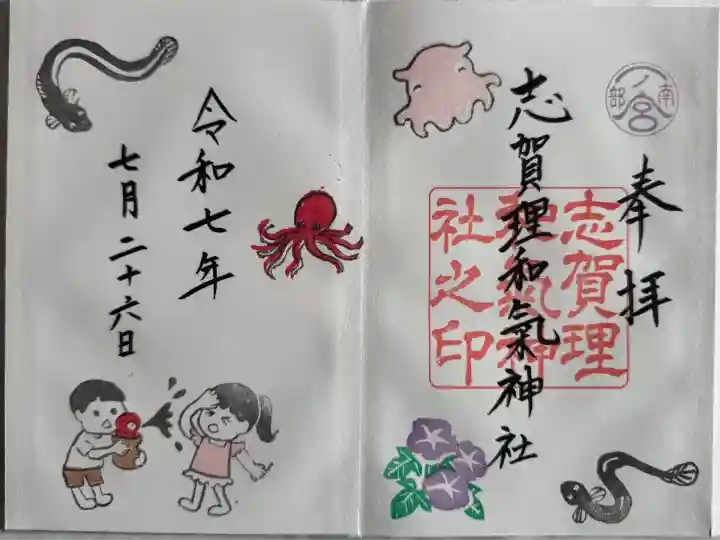 南部
一ノ宮
奉拝
志賀理和氣神社
志賀理
和氣神
社之印
令和七年
七月二十六日